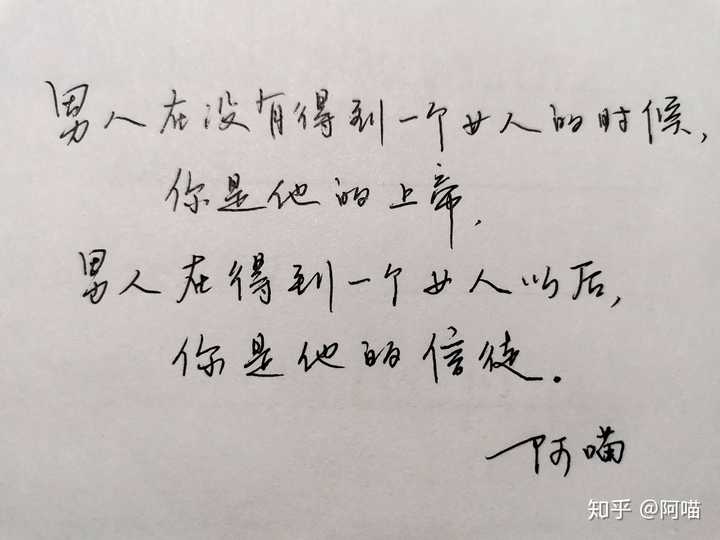 男人在没有得到一个女人的时候,
你是他的上帝,
男人在得到一个女人以后,
你是他的信徒。
阿喵
知乎 @阿喵